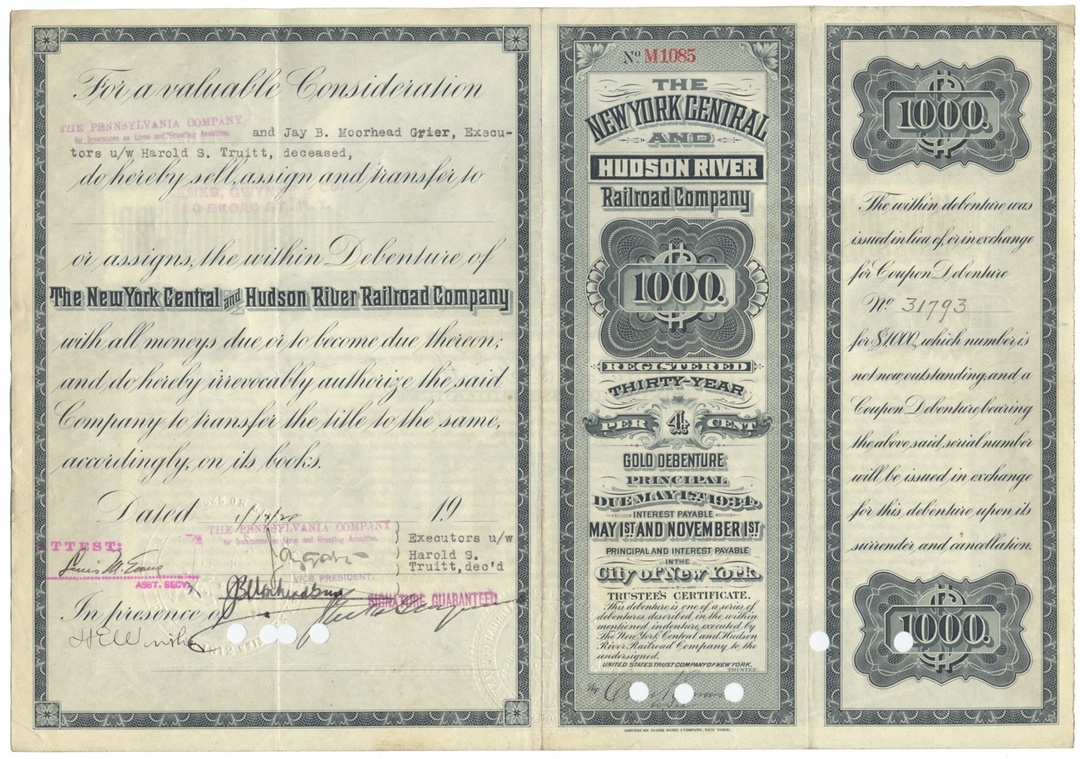 For a valuable Consideration
THE PENNSYLVANIA COMPANY
for Insurances on Lives and Granting Annuities.
and Jay B. Moorhead Grier, Execu-
tors u/w Harold S. Truitt, deceased,
do hereby sell, assign and transfer to
BROAD ST. N. Y.
or assigns, the within Debenture of
The New York Central and Hudson River Railroad Company
with all moneys due or to become due thereon;
and do hereby irrevocably authorize the said
Company to transfer the title to the same,
accordingly, on its books.
Dated 19
THE PENNSYLVANIA COMPANY
for Insurances on Lives and Granting Annuities.
Executors u/w
Harold S.
Truitt, dec'd
ATTEST:
VICE PRESIDENT.
ASST. SECY.
SIGNATURE GUARANTEED
In presence of
No. M1085
THE
NEW YORK CENTRAL
AND
HUDSON RIVER
Railroad Company
$
1000.
REGISTERED
THIRTY-YEAR
4 PER CENT
GOLD DEBENTURE
PRINCIPAL
DUE MAY 1ST, 1934.
INTEREST PAYABLE
MAY 1ST AND NOVEMBER 1ST
PRINCIPAL AND INTEREST PAYABLE
IN THE
City of New York.
TRUSTEE'S CERTIFICATE.
This debenture is one of a series of
debentures described in the within
mentioned indenture, executed by
The New York Central and Hudson
River Railroad Company to the
undersigned.
UNITED STATES TRUST COMPANY OF NEW YORK,
TRUSTEE.
By
AMERICAN BANK NOTE COMPANY, NEW YORK.
$
1000.
The within debenture was
issued in lieu of, or in exchange
for Coupon Debenture
No. 31793
for $1,000, which number is
not now outstanding, and a
Coupon Debenture bearing
the above said serial number
will be issued in exchange
for this debenture upon its
surrender and cancellation.
$
1000.